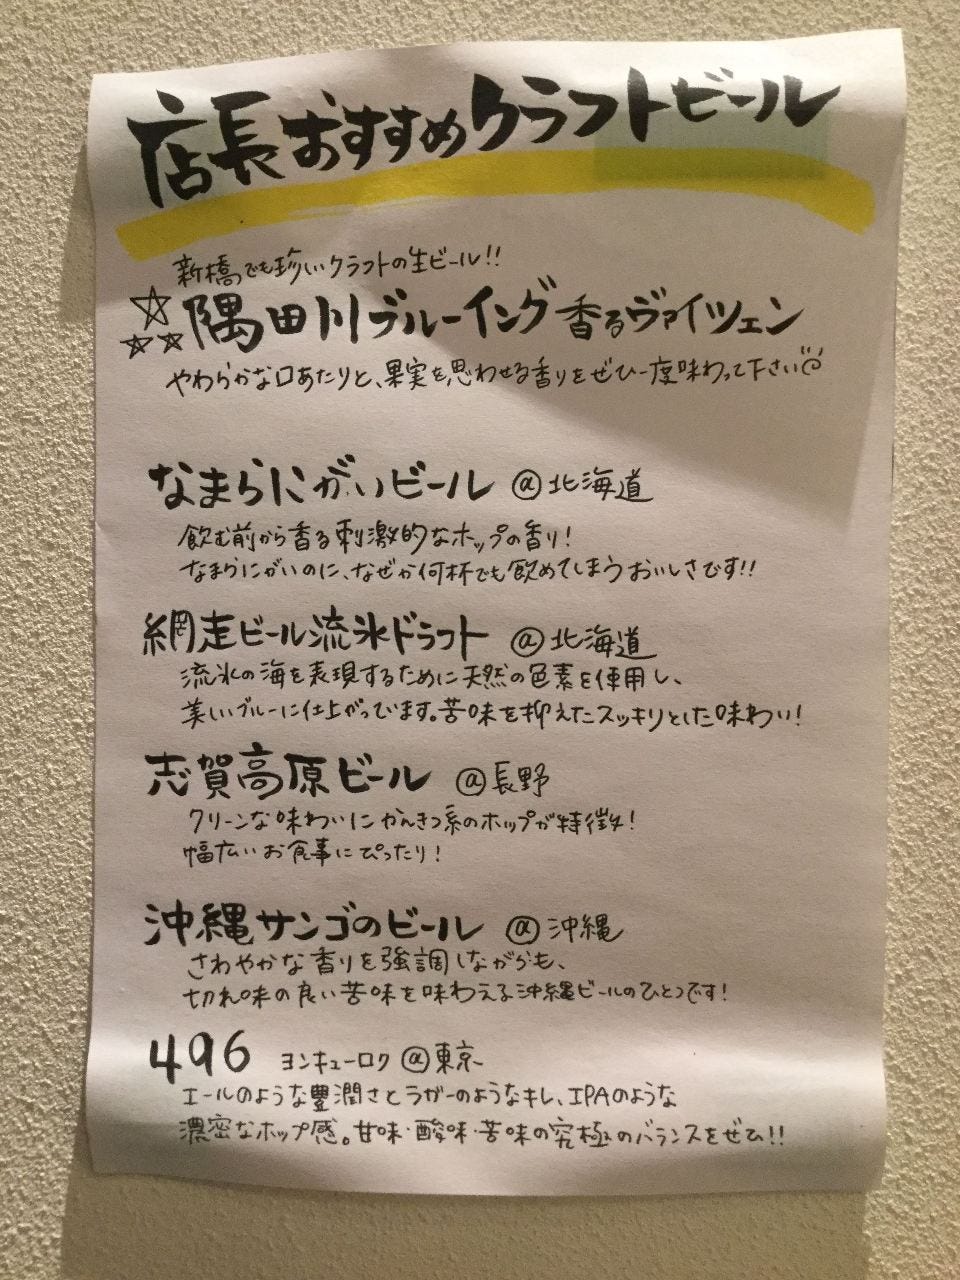 店長おすすめクラフトビール
新橋でも珍しいクラフトの生ビール!!
隅田川ブルーイング 香るヴァイツェン
やわらかな口あたりと、果実を思わせる香りをぜひ一度味わって下さい
なまらにがいビール @北海道
飲む前から香る刺激的なホップの香り!
なまらにがいのに、なぜか何杯でも飲めてしまうおいしさです!!
網走ビール流氷ドラフト @北海道
流氷の海を表現するために天然の色素を使用し、
美しいブルーに仕上がっています。苦味を抑えたスッキリとした味わい!
志賀高原ビール @長野
クリーンな味わいにかんきつ系のホップが特徴!
幅広いお食事にぴったり!
沖縄サンゴのビール @沖縄
さわやかな香りを強調しながらも、
切れ味の良い苦味を味わえる沖縄ビールのひとつです!
496 ヨンキューロク @東京
エールのような豊潤さとラガーのようなキレ、IPAのような
濃密なホップ感。甘味・酸味・苦味の究極のバランスをぜひ!!